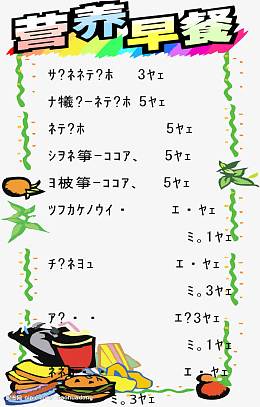 营养早餐
サ?ネネテ?ホ 3ヤェ
ナ犧?ーネテ?ホ 5ヤェ
ネテ?ホ 5ヤェ
シヲネ箏ーココア、 5ヤェ
ヨ柀箏ーココア、 5ヤェ
ツフカケノウイ・ エ・ヤェ
ミ。ヤェ
チ?ネヨュ エ・ヤェ
ミ。3ヤェ
ア?・・ エ?3ヤェ
ミ。1ヤェ
エ・ヤェ
ミ。3ヤェ